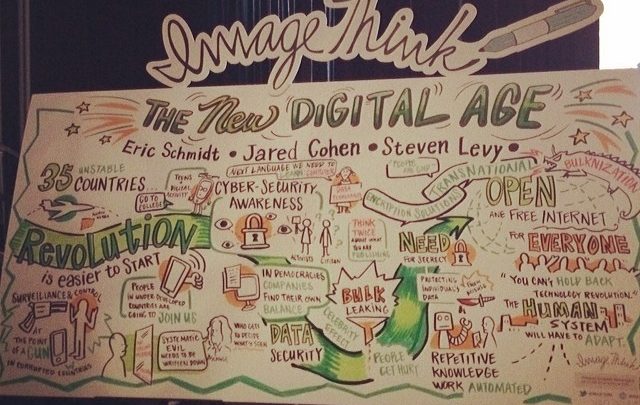 ImageThink
THE New "DIGITAL" AGE
Eric Schmidt • Jared Cohen • Steven Levy •
35 UNSTABLE
COUNTRIES...
GO TO
COLLEGE
TEENS
DIGITAL
NEXT LANGUAGE WE NEED TO
CYBER-SECURITY
AWARENESS
DATA
ACTIVISTS
CITIZEN
THINK
TWICE
ABOUT WHAT
YOU ARE
PUBLISHING
PEOPLE
ENCRYPTION SOLUTIONS
TRANSNATIONAL
BULKNIZATION
OPEN
AND FREE INTERNET
FOR EVERYONE
REVOLUTION
is easier to START
PEOPLE
IN UNDER DEVELOPED
COUNTRIES ARE
GOING TO JOIN US
SURVEILLANCE & CONTROL
AT
THE POINT
OF A GUN
IN CORRUPTED COUNTRIES
SYSTEMATIC
EVIL
NEEDS TO BE
WRITTEN DOWN
IN DEMOCRACIES
COMPANIES
FIND THEIR OWN
BALANCE
WHO GETS
TO DECIDE
WHAT'S SEEN
DATA
SECURITY
BULK
LEAKING
CELEBRITY
EFFECT
PEOPLE
GET HURT
NEED
FOR SECRECY
PROTECTING
INDIVIDUALS
DATA
REPETITIVE
KNOWLEDGE
WORK AUTOMATED
"YOU CAN'T HOLD BACK
TECHNOLOGY REVOLUTION."
THE HUMAN
SYSTEM
WILL HAVE TO ADAPT.
ImageThink